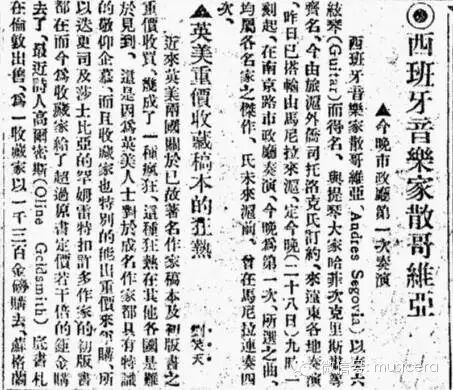 西班牙音樂家散哥維亞
▲今晚市政廳第一次奏演
西班牙音樂家散哥維亞 Andres Segovia 以善六
絃琴(Guitar)而得名、與提琴大家哈菲次克里斯
齊名、今由旅滬外僑司托洛克氏訂約、來遠東各地奏演
、昨日已搭輪由馬尼拉來滬、定今晚(二十八日)九時
刻起、在南京路市政廳奏演、今晚爲第一次、所選之曲、
均屬各名家之傑作、氏未來滬前、曾在馬尼拉連奏四
次、
▲英美重價收藏稿本的狂熱
近來英美兩國關於已故著名作家稿本及初版書之
重價收買、幾成了一種瘋狂、這種狂熱在其他各國是難
於見到、還是因爲英美人士對於成名作家都具有特識
的敬仰企慕、而且收藏家也特別的能出重價來爭購、所
以迭更司及莎士比亞的罕姆雷特扣許多作家的初版書
都在而今爲收藏家給了超過原書定價若干倍的鉅金購
去了、最近詩人高爾密斯(Oline Goldsmith)底書札
在倫敦出售、爲一收藏家以一千三百金磅購去、蘇格蘭
微信号: musicera